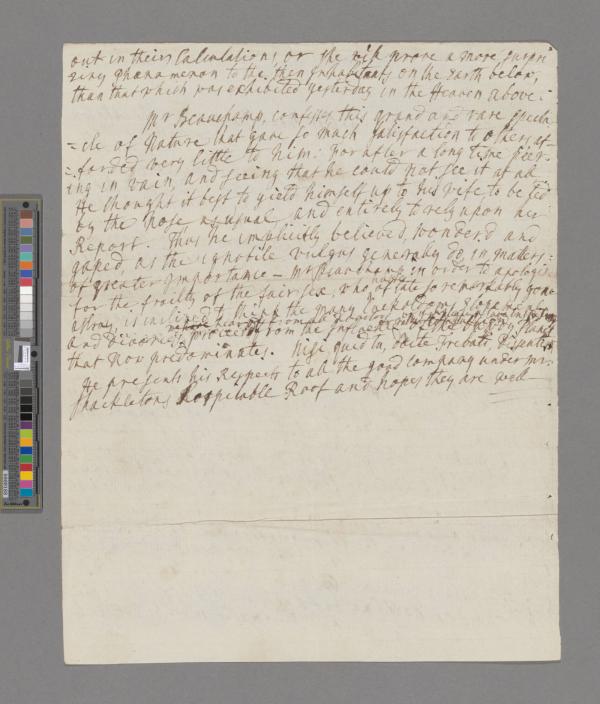 out in their Calculations, or the risk prove a more surpri
zing phænomenon to the then Inhabitants on the Earth below,
than that which was exhibited yesterday in the Heaven above.
Mr Beauchamp, confesses this grand and rare specta
=cle of Nature that gave so much satisfaction to others af-
=forded very little to him: For after a long time peer-
ing in vain, and seeing that he could not see it at all
He thought it best to yield himself up to his wife to be led
by the Nose as usual and entirely to rely upon her
Report. Thus he implicitly believed, wonder'd and
gaped, as the ignobile vulgus generally do, in matters
of greater Importance - Mr Beauchamp in order to apologise
for the frailty of the fair sex, who of late so remarkably gone
astray, is inclined to think the many
and Divorces proceed from the
that now predominates. Nisi quid tu, docte Trebati, Dissentis
He presents his Respects to all the good company under Mr
Shackletons hospitable Roof and hopes they are well